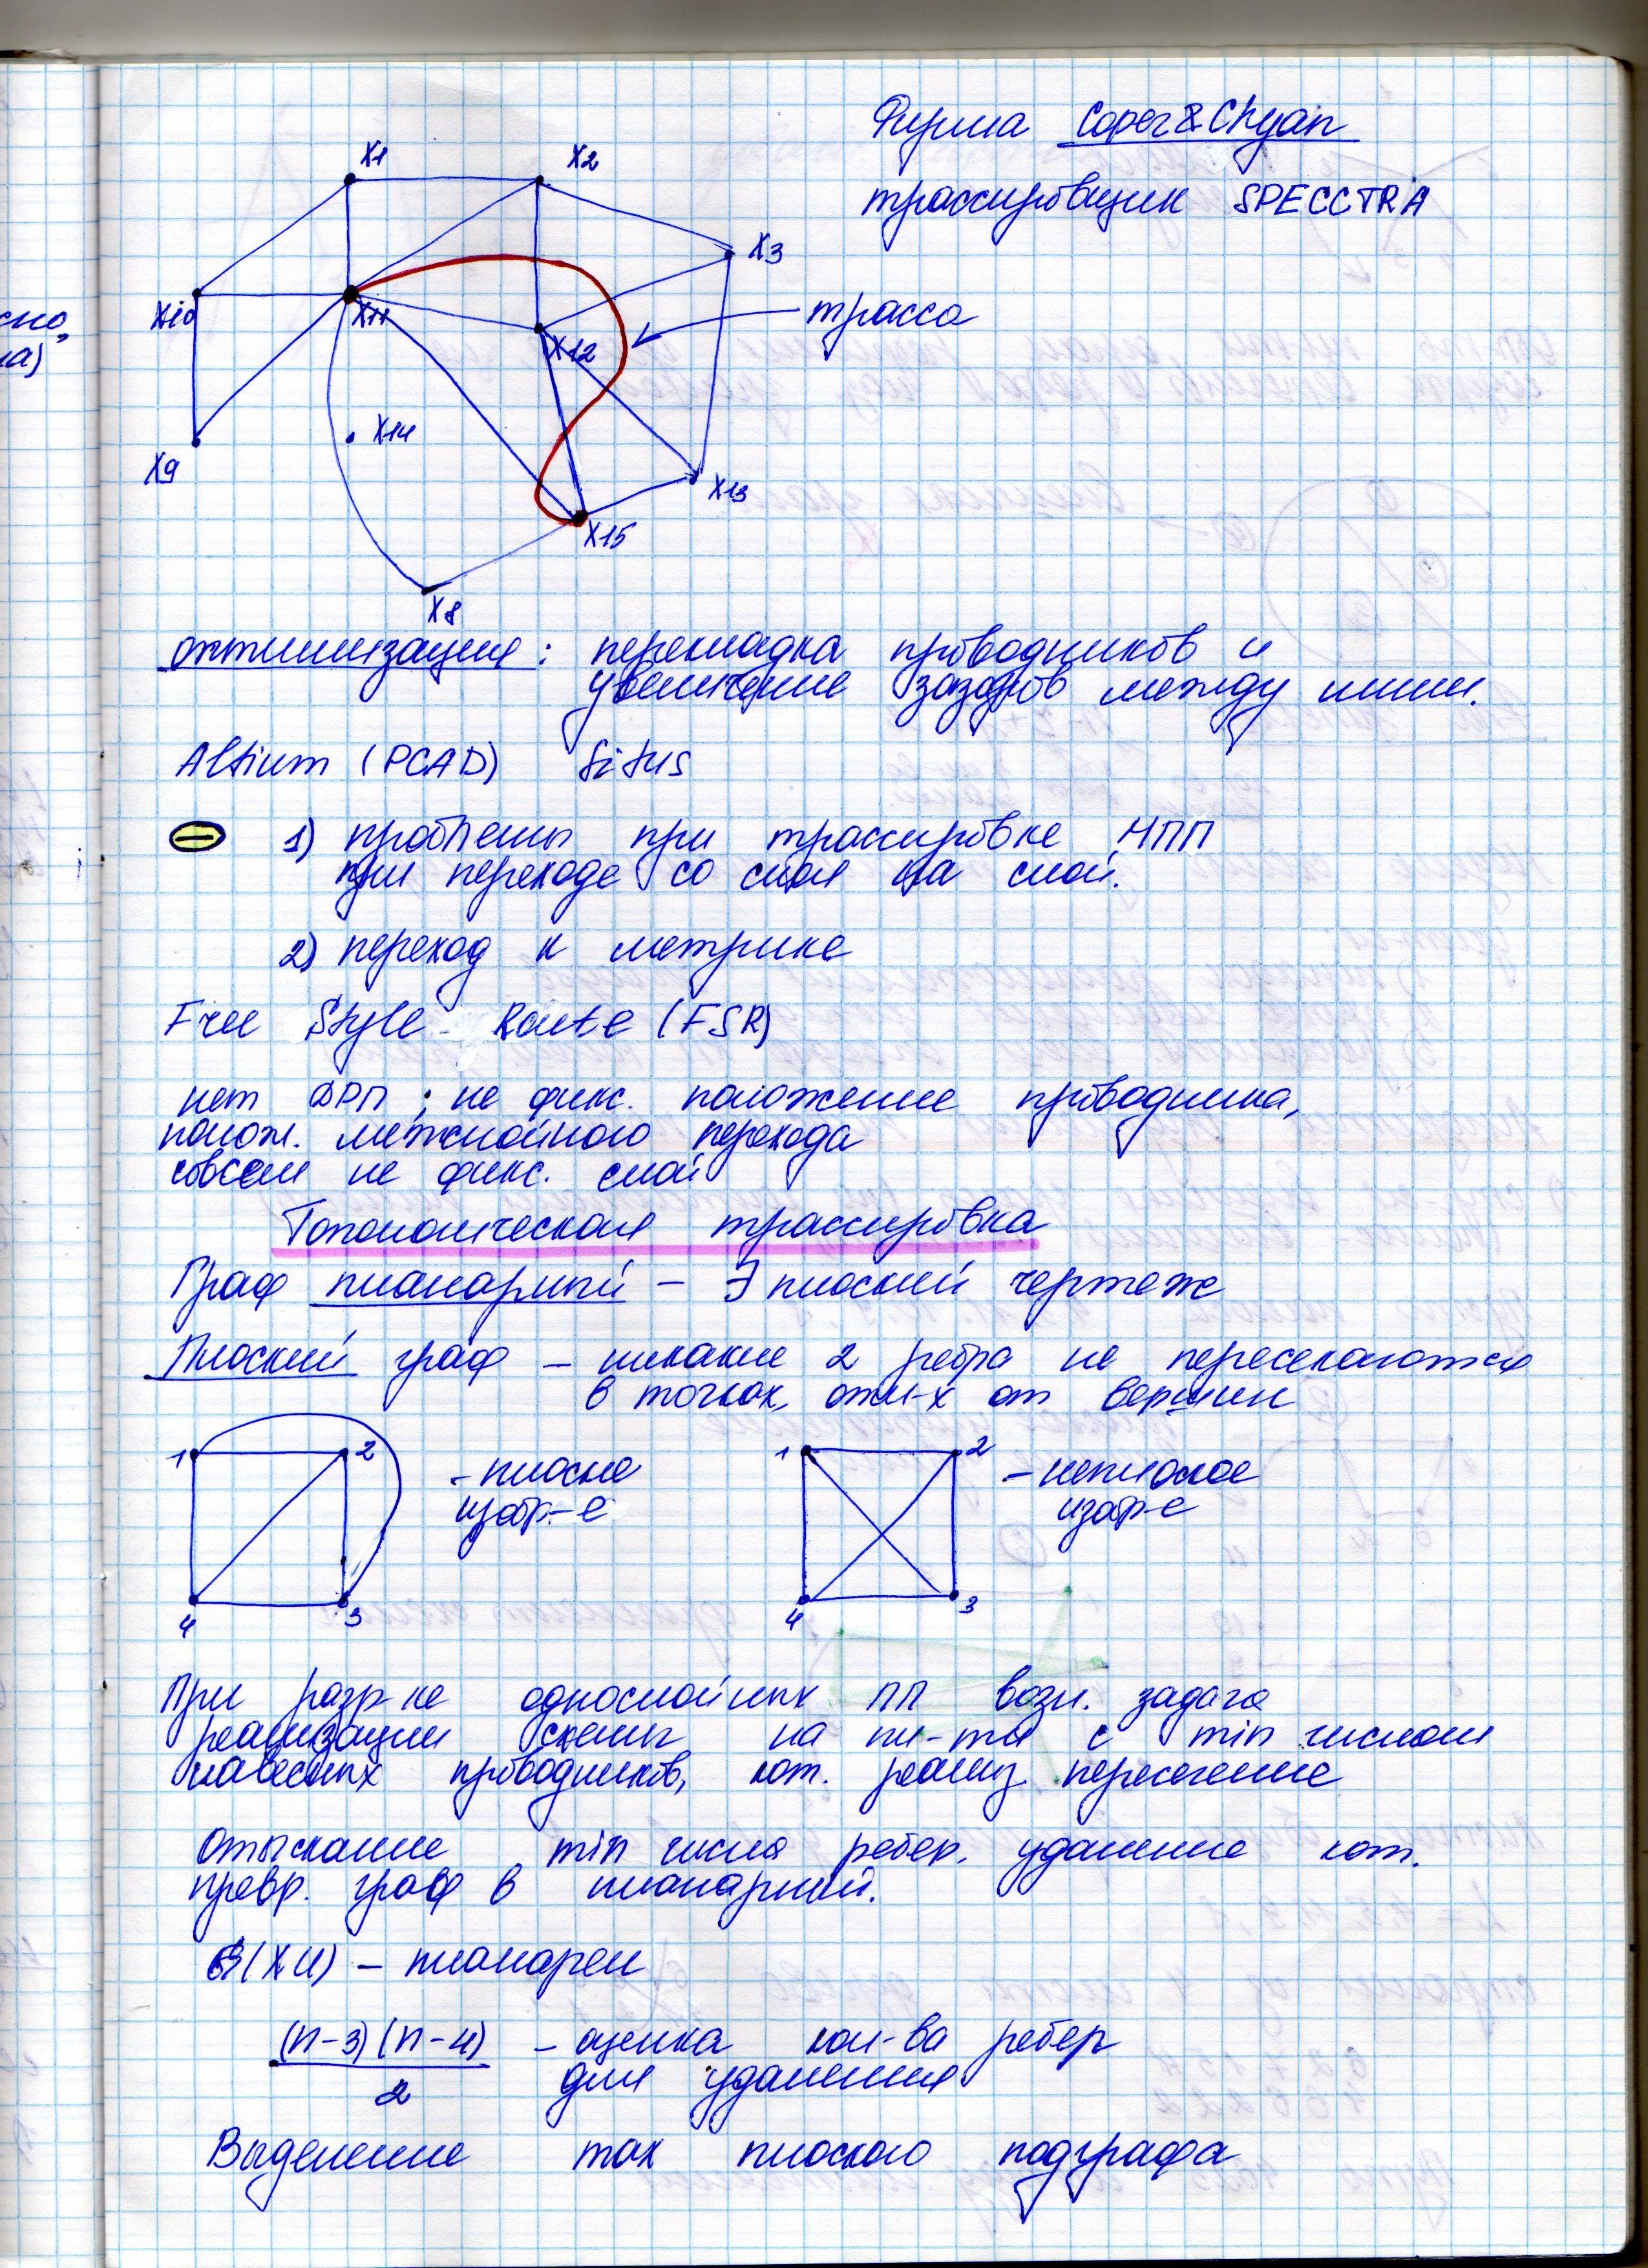 Фирма Coper&Chyan
трассировщик SPECCTRA
X1
X2
X3
X10
X11
трасса
X12
X9
X14
X13
X15
X8
оптимизация: перекладка проводников и
увеличение зазоров между ними.
Altium (PCAD) Situs
1) проблемы при трассировке МПП
при переходе со слоя на слой.
2) переход к метрике
Free Style Route (FSR)
нет ДРП; не фикс. положение проводника,
полож. межслойного перехода
совсем не фикс. слой
Топологическая трассировка
Граф планарный – ∃ плоский чертеж
Плоский граф – никакие 2 ребра не пересекаются
в точках, отл-х от вершин
1 2
- плоское
изобр-е
4 3
1 2
- неплоское
изобр-е
4 3
При разр-ке однослойных ПП возн. задача
реализации схемы на пл-ти с min числом
навесных проводников, кот. реализ. пересечение
Отыскание min числа ребер, удаление кот.
превр. граф в планарный.
G(X U) – планарен
(n-3)(n-4)
2
– оценка кол-ва ребер
для удаления
Выделение max плоского подграфа
сно,
ла)